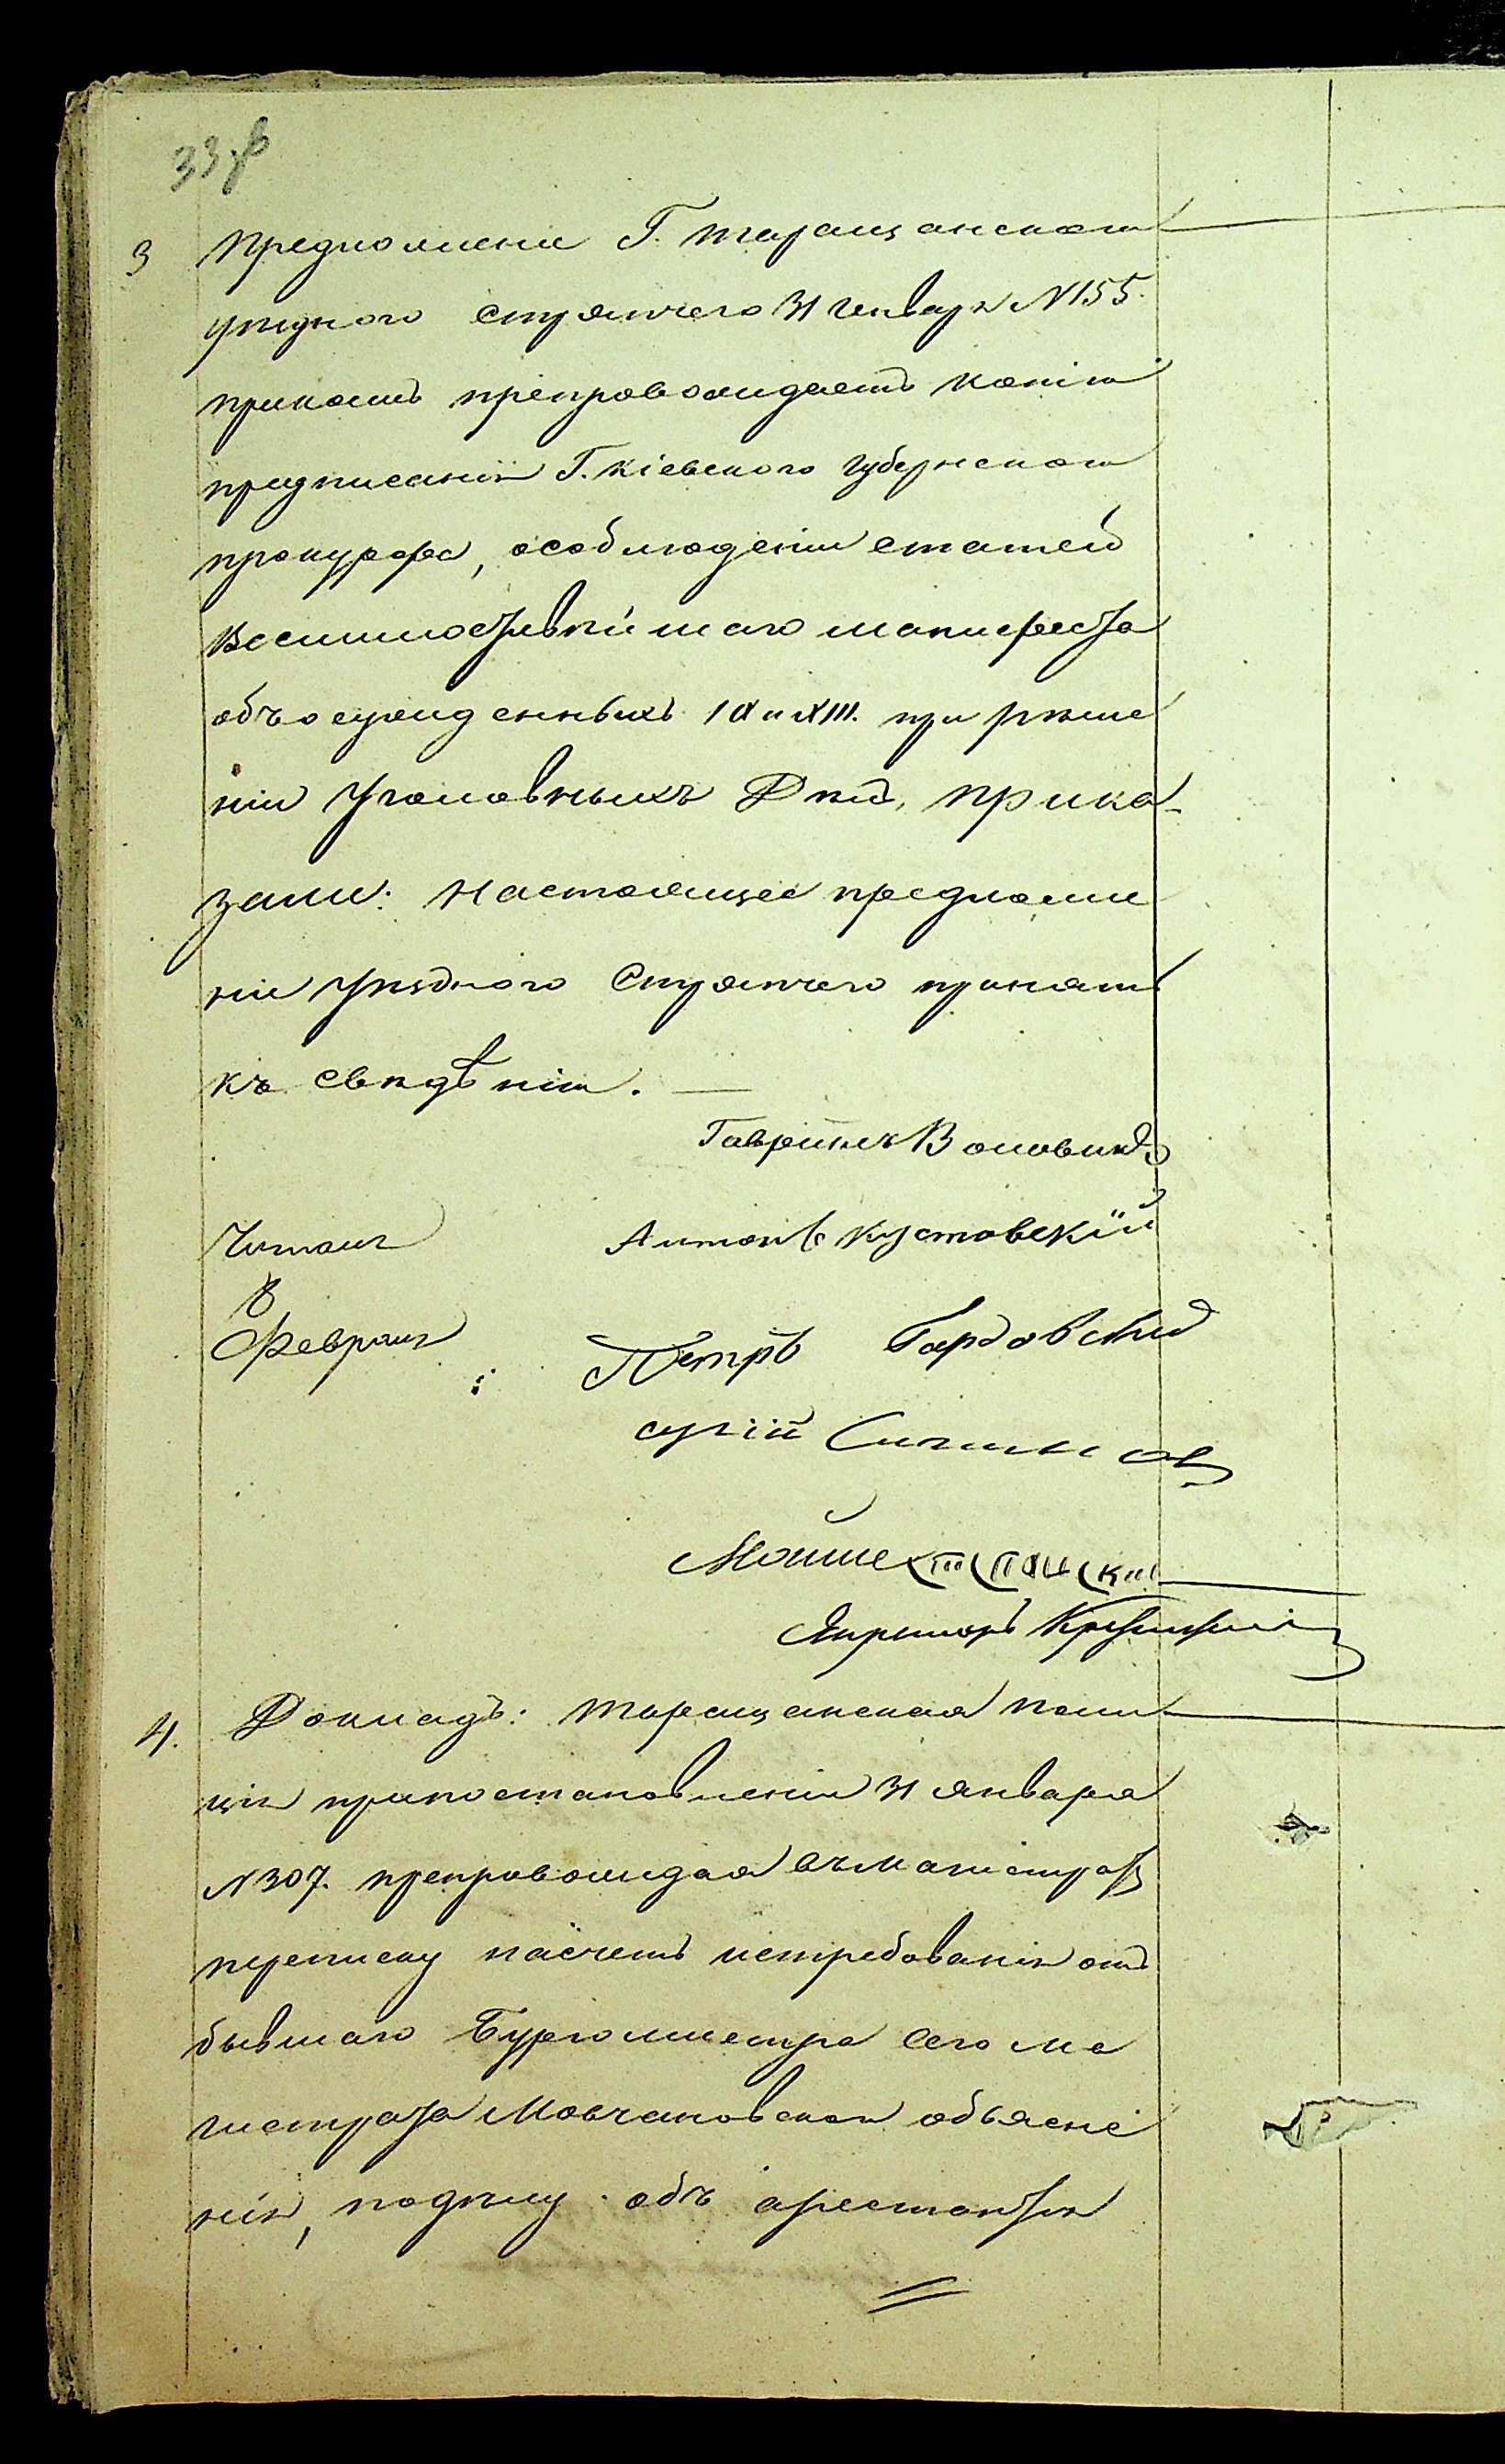 3 Предложение Г. Таращанскаго
уѣзднаго стряпчего 31 Генваря N 155.
при коемъ препровождаетъ копію
предписанія Г. Кіевскаго Губернскаго
прокурора, о соблюденіи статей
Всемилостивѣйшаго манифеста
объ осужденныхъ IX и XIII. при рѣше
ніи Уголовныхъ Дѣлъ, Прика-
зали: Настоящее предложе
ніе Уѣзднаго Стряпчего принять
къ свѣдѣнію. —
Гавріилъ Воловикъ
Читалъ Антонъ Кустовскій
8
Февраля Петръ Гардовскій
Сергій
Мошне
4. Докладъ: Таращанская поли
ція при постановленіи 31 января
N 307. препровождая въ магистратъ
переписку насчетъ истребованія отъ
бывшаго Бургомистра сего ма
гистрата Мовчановскаго объясне
нія, по дѣлу объ арестантѣ